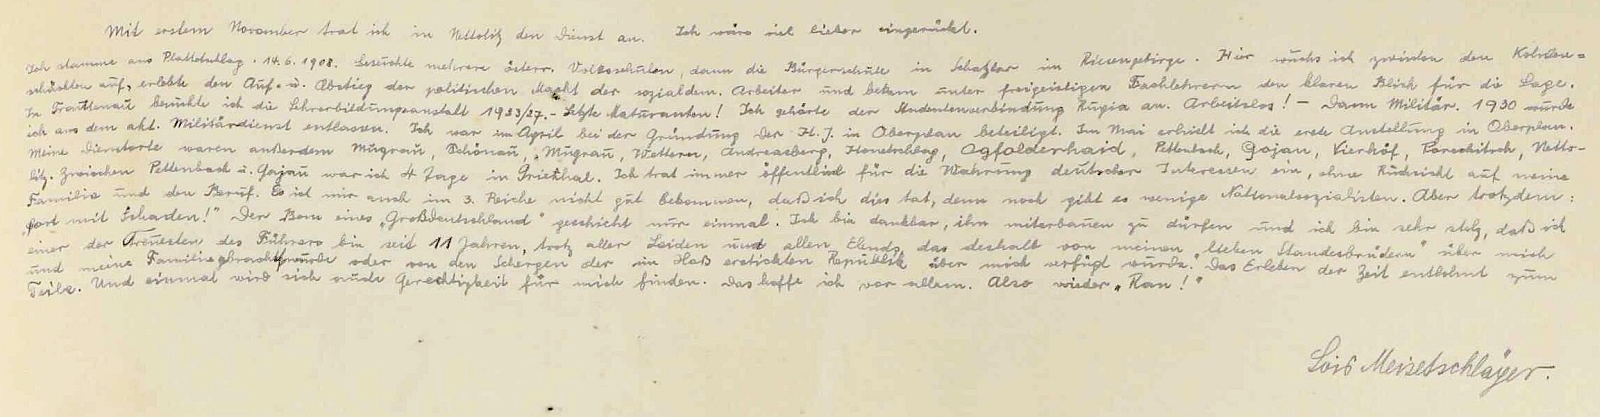 Mit erstem November trat ich in Nettolitz den Dienst an. Ich wäre viel lieber eingerückt.
Ich stamme aus Plattetschlag, 14.6.1908. Besuchte mehrere österr. Volksschulen, dann die Bürgerschule in Schatzlar im Riesengebirge. Hier wuchs ich zwischen den Kohlen=
schächten auf, erlebte den Auf- u. Abstieg der politischen Macht der sozialdem. Arbeiter und bekam unter freigeistigen Fachlehrern den klaren Blick für die Lage.
In Trautenau besuchte ich die Lehrerbildungsanstalt 1923/27. - Letzte Maturanten! Ich gehörte der Studentenverbindung Rugia an. Arbeitslos! - Dann Militär. 1930 wurde
ich aus dem akt. Militärdienst entlassen. Ich war im April bei der Gründung der H.J. in Oberplan beteiligt. Im Mai erhielt ich die erste Anstellung in Oberplan.
Meine Dienstorte waren außerdem Mugrau, Schönau, Mugrau, Wettern, Andreasberg, Honetschlag, Ogfolderhaid, Pettenbach, Gojau, Vierhöf, Netto-
litz. Zwischen Pettenbach u. Gojau war ich 4 Tage in Priethal. Ich trat immer öffentlich für die Wahrung deutscher Interessen ein, ohne Rücksicht auf meine
Familie und den Beruf. Es ist mir auch im 3. Reiche nicht gut bekommen, daß ich dies tat, denn noch gibt es wenige Nationalsozialisten. Aber trotzdem:
"fort mit Schaden!" Der Bau eines "Großdeutschland" geschieht nur einmal. Ich bin dankbar, ihn miterbauen zu dürfen und ich bin sehr stolz, daß ich
einer der Treuesten des Führers bin seit 11 Jahren, trotz aller Leiden und allen Elends, das deshalb von meinen "lieben Standesbrüdern" über mich
und meine Familie gebracht wurde oder von den Schergen der im Haß erstickten Republik über mich verfügt wurde. Das Erleben der Zeit entlohnt zum
Teile. Und einmal wird sich auch Gerechtigkeit für mich finden. Das hoffe ich vor allem. Also wieder "Ran!"
Lois Meisetschläger.